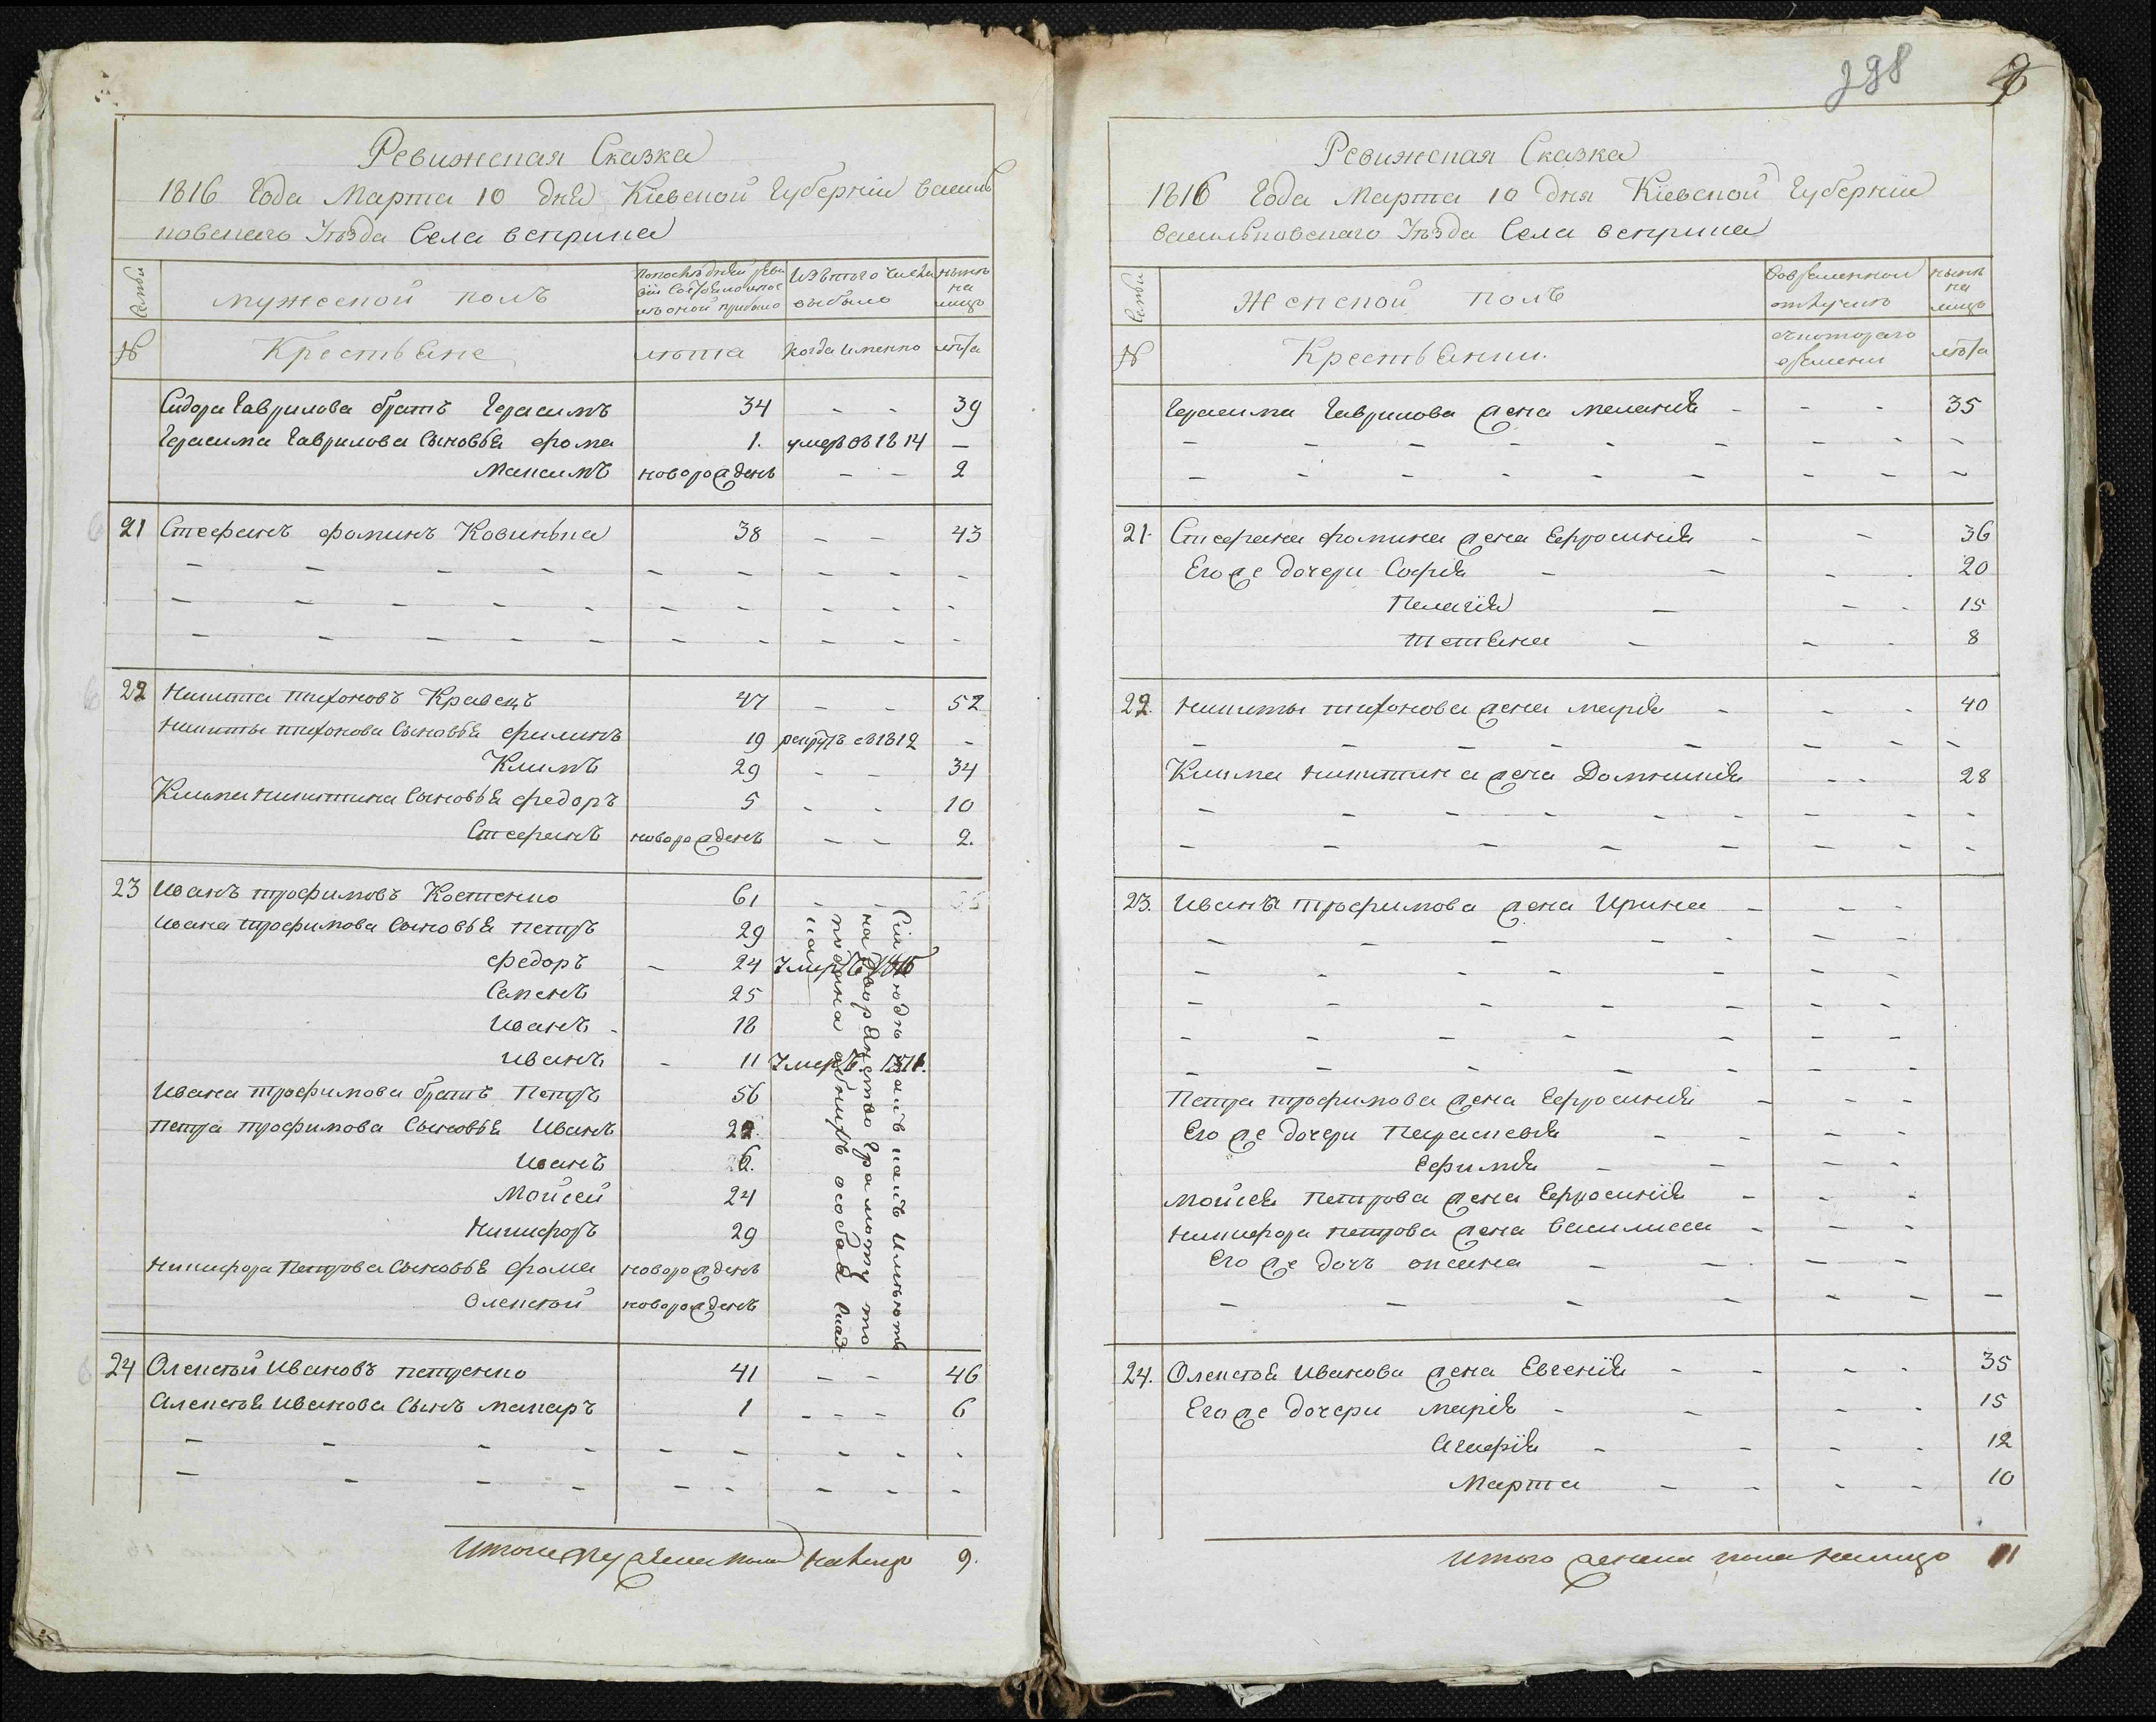 Ревижская Сказка
1816 Года Марта 10 дня Кіевской Губерніи василь
ковского Уѣзда Села веприка
Семьи
мужеской полъ
По последней реви
зіи состояло и пос
лѣ оной прибыло
Изъ того числа
выбыло
нынѣ
на
лицо
№
Крестьяне
лѣта
когда именно
лѣта
Сидора Гаврилова братъ Герасимъ 34 - - 39
Герасима Гаврилова сыновья фома 1. умеръ въ 1814 —
Максимъ новорожденъ - - 2
21 Стефанъ фоминъ Ковинька 38 - - 43
22 Никита тихоновъ Кравецъ 47 - - 52
Никиты тихонова сыновья филипъ 19 рекрутъ въ 1812 -
Климъ 29 - - 34
Клима никитина сыновья федоръ 5 - - 10
Стефанъ новорожденъ - - 2.
23 Иванъ трофимовъ Костенко 61 - -
Ивана трофимова сыновья петръ 29
федоръ - 24 Умеръ 1815
Семенъ 25
Иванъ - 18
Иванъ - 11 Умеръ. 1811.
Ивана трофимова братъ Петръ 56
петра трофимова сыновья Иванъ 22.
Иванъ 6.
Мойсей 24
Никифоръ 29
никифора Петрова сыновья фома новорожденъ
Олексей новорожденъ
Сіи люди какъ имеютъ
на дворянство грамоту то
подана обнихъ особая сказ
ка
24 Олексей Ивановъ петренко 41 - - 46
Алексея Иванова сынъ макаръ 1 - - - 6
Итого мужеска пола налицо 9.
298
Ревижская Сказка
1816 Года Марта 10 дня Кіевской Губерніи
васильковского Уѣзда Села веприка
Семьи
Женской полъ
Вовременной
отлучке
нынѣ
на
лицо
№
Крестьянки.
скоторого
времени
лѣта
Герасима Гаврилова жена меланія - - - 35
21. Стефана фомина жена Ефросинія - - 36
Его же дочери Софія - - - - 20
Пелагія — - - 15
Тетьяна - - - 8
22. никиты тихонова жена марія - - - 40
Клима никитина жена Домникія - - 28
23. Ивана трофимова жена Ирина - - -
Петра трофимова жена Ефросинія - - -
Его же дочери Параскевія - - - -
Ефимія - - - -
Мойсея петрова жена Ефросинія - - -
никифора петрова жена василиса - - -
Его же дочь оксина - - - -
24. Олексея Иванова жена Евгенія - - - - 35
Его же дочери марія - - - - 15
Агафія - - - - 12
Марта - - - - 10
Итого женска пола налицо 11